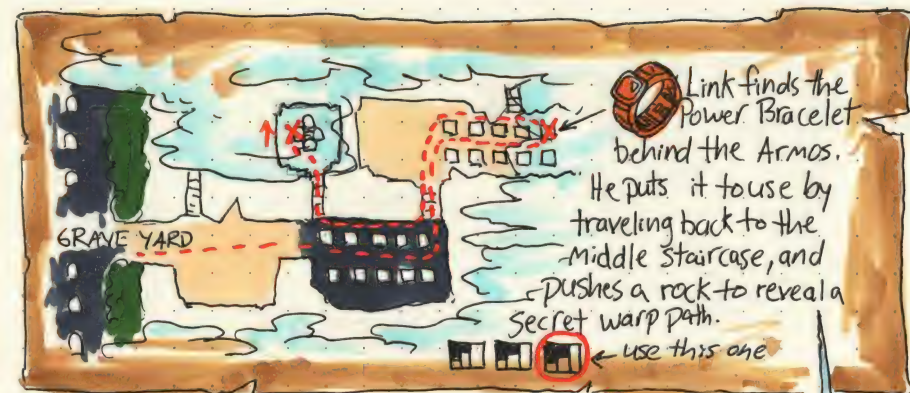 Link finds the
Power Bracelet
behind the Armos.
He puts it to use by
traveling back to the
middle staircase, and
pushes a rock to reveal a
secret warp path.
use this one
GRAVE YARD